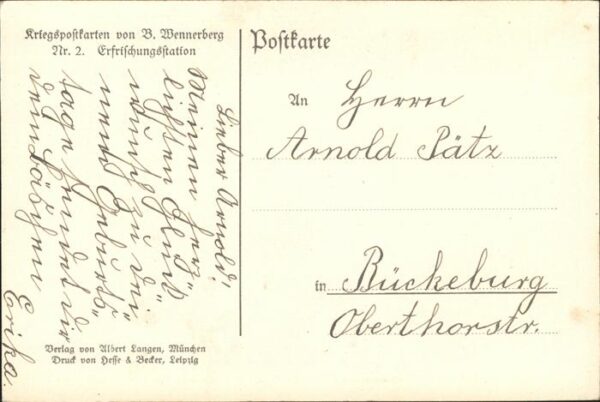 Kriegspostkarten von B. Wennerberg
Nr. 2. Erfrischungsstation
Lieber Arnold!
Meinen herz"
lichsten Glück"
wunsch zu dei"
nem Geburts"
tage sendet dir
dein Bäschen
Erika.
Verlag von Albert Langen, München
Druck von Hesse & Becker, Leipzig
Postkarte
An Herrn
Arnold Pätz
in Bückeburg
Oberthorstr.